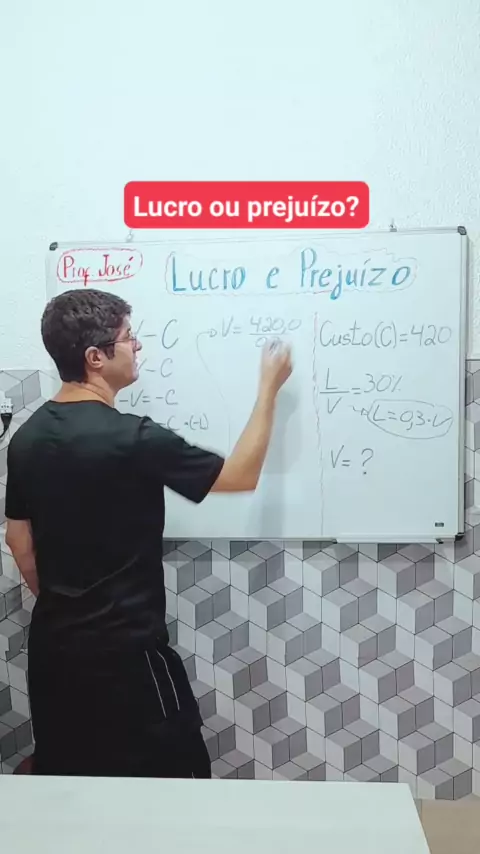 Lucro ou prejuízo?
Prof José
Lucro e Prejuízo
V - C
V - C
-V = -C
-C •(-1)
V = 420,0
Custo(C)=420
L/V = 30%
L=0,3·V
V= ?